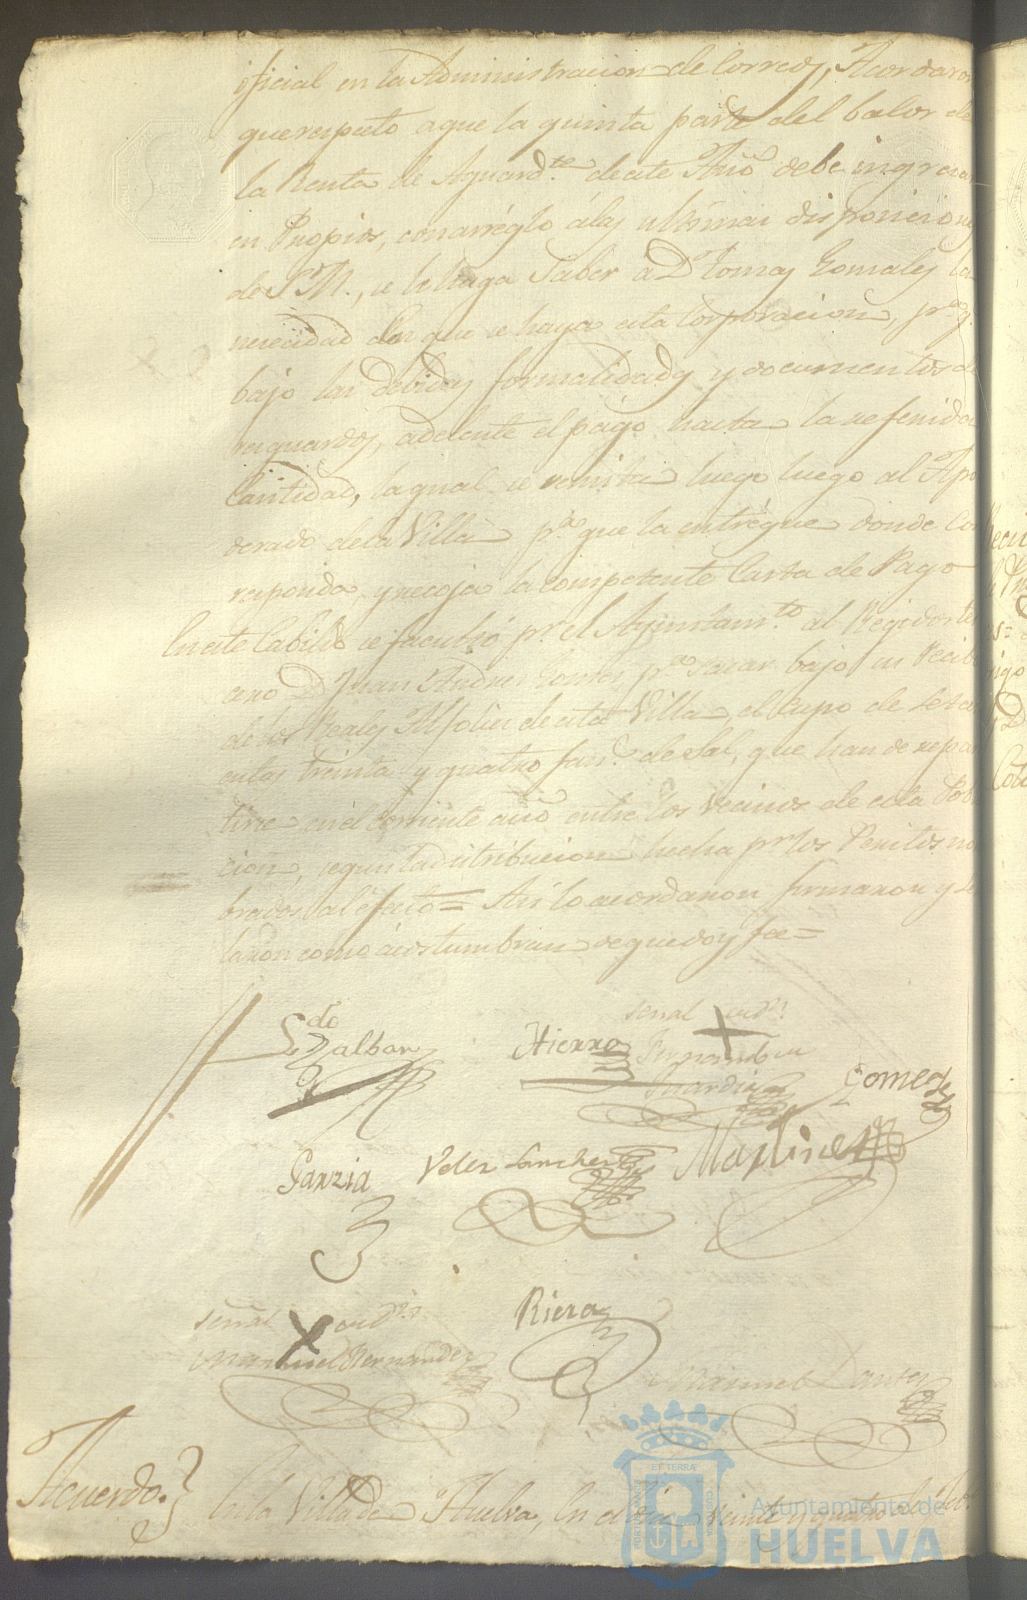 oficial en la Administracion de Correos, Acordaron
que respecto a que la quinta parte del balor de
la Renta de Aguard.te de este Año debe ingresar
en Propios, con arréglo á las ultimas disposiciones
de S. M., se le haga Saber a D.n Tomas Gonzales la
necesidad en que se haya esta Corporacion, p.a q.e
bajo las debidas formalidades y documentos de
resguardos, adelante el págo hasta la referida
Cantidad, la qual se remita luego luego al Apo
derado de la Villa p.a que la entrégue donde Co
rresponda, y recoja la competente Carta de Pago
En este Cabildo se facultó p.r el Ayuntam.to al Regidor De
cano D.n Juan Andres p.a sacar bajo su Recibo
de los Reales Alfolies de esta Villa, el Cupo de
treinta y quatro fan.s de Sal, que han de repar
tirse en el corriente año entre los Vecinos de esta Pobla
cion, segun la distribucion hecha p.r los Peritos nom
brados al éfecto= Asi lo acordaron firmaron y se
ñalaron como ácostumbran de que doy fee=
L.do
Zalbar
Hierro
señal
Gomez
Garzia
Velez Sanchez
Martinez
señal
Manuel Hernandez
Riera
Manuel
Acuerdo.
En la Villa de Huelva, En el dia veinte y quatro
ET TERRÆ
Ayuntamiento de
HUELVA